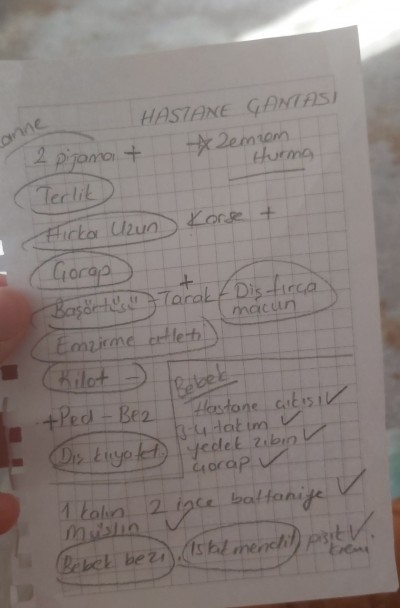 HASTANE ÇANTASI
anne
2 pijama +
* Zemzem
Hurma
Terlik
Hırka Uzun
Korse +
Çorap
Başörtüsü - Tarak - Diş fırça
+
macun
Emzirme atleti
Kilot -
+Ped - Bez
Dış kıyafet
Bebek
Hastane çıkışı ✓
3-4 takım ✓
yedek zıbın ✓
Çorap ✓
1 kalın 2 ince battaniye ✓
müslin ✓
Bebek bezi. Islak mendil pişik ✓
kremi.